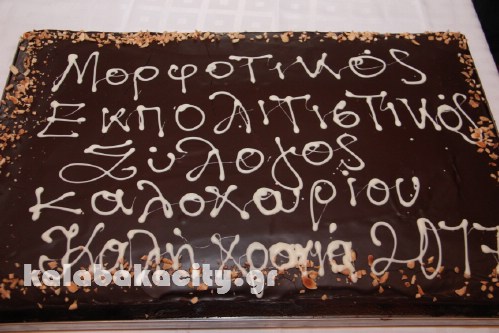 Μορφοτικός
Εκπολιτιστικός
Σύλογος
καλοχαρίου
Καλή χρονιά 2017
kalabakacity.gr